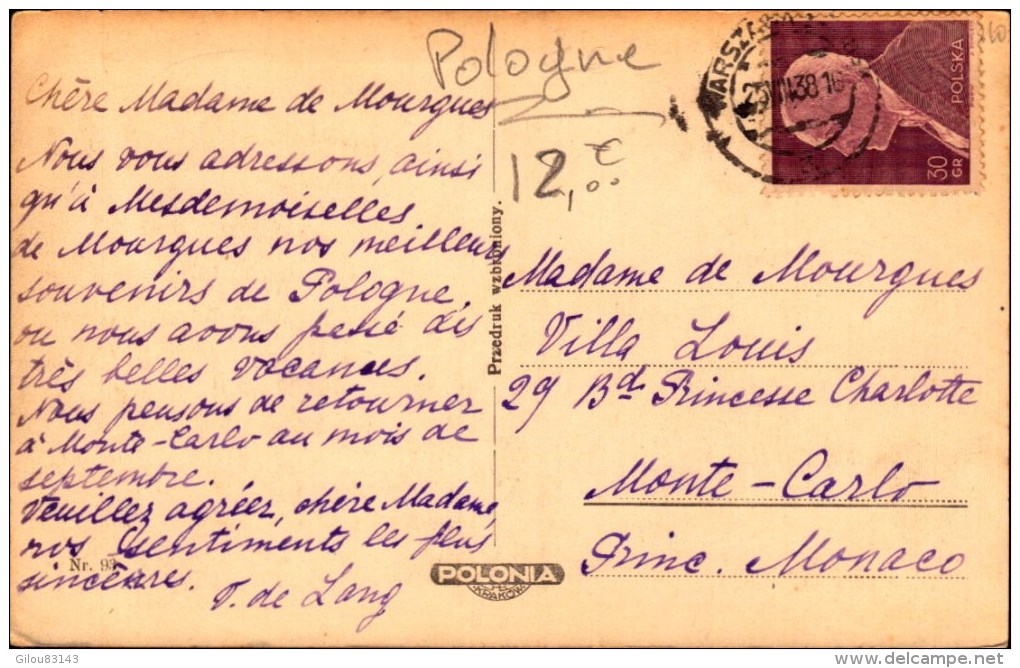 Pologne
12,00 €
Chère Madame de Mourgues
Nous vous adressons, ainsi
qu'à Mesdemoiselles
de Mourgues nos meilleurs
souvenirs de Pologne,
ou nous avons passé des
très belles vacances.
Nous pensons de retourner
à Monte-Carlo au mois de
septembre.
Veuillez agréer, chère Madame,
nos sentiments les plus
sincères.
T. de Lang
Nr. 93
Przedruk wzbroniony.
POLONIA
KRAKÓW
38 16
POLSKA
30
GR
Madame de Mourgues
Villa Louis
29 Bd. Princesse Charlotte
Monte-Carlo
Princ. Monaco
Gilou83143
www.delcampe.net